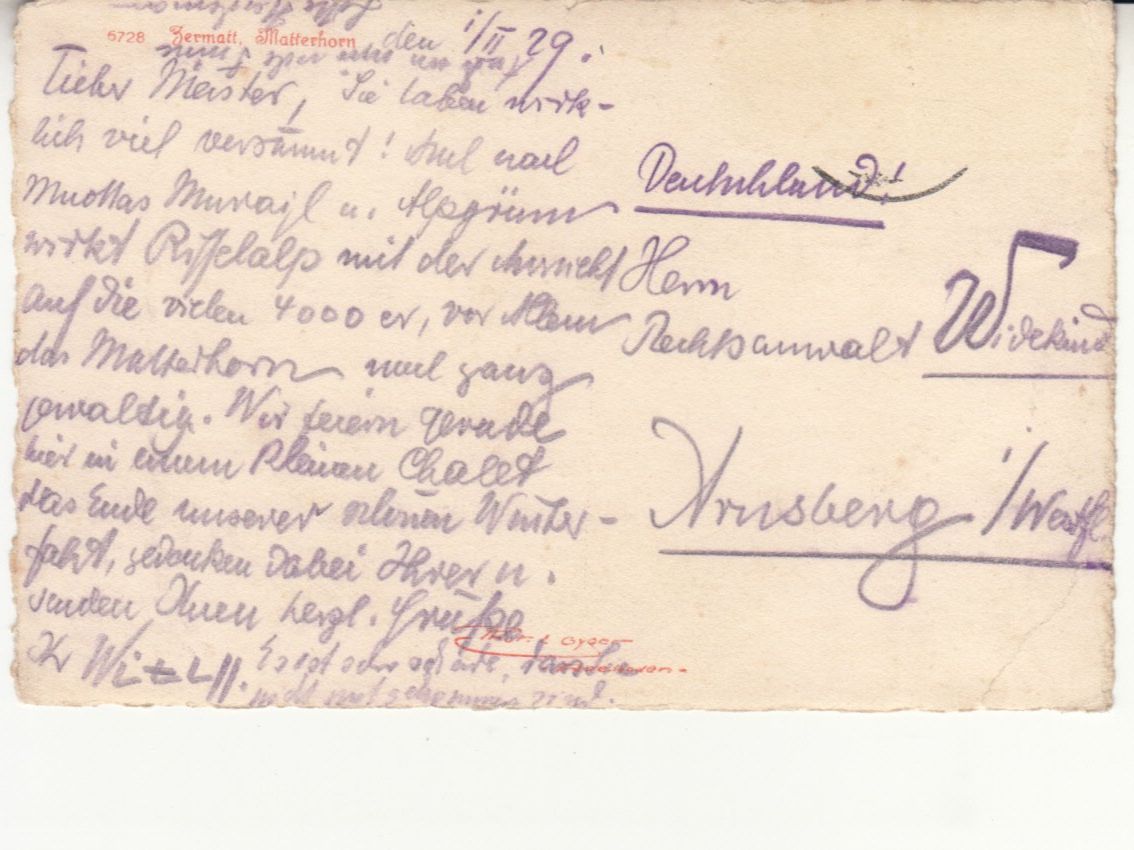 6728 Zermatt, Matterhorn
den 1/II 29.
Lieber Meister, Sie haben wirk-
lich viel versäumt! Auch nach
Muottas Muraigl u. Alpgrüm
wirkt Riffelalp mit der Aussicht
auf die vielen 4000 er, vor Allem
das Matterhorn noch ganz
gewaltig. Wir feiern gerade
hier in einem kleinen Chalet
das Ende unserer schönen Winter-
fahrt, gedenken dabei Ihrer u.
senden Ihnen herzl. Grüße
Ihr
Es ist sehr schade, dass Sie
nicht mitgekommen sind.
Deutschland!
Herrn
Rechtsanwalt Widekind
Arnsberg i/Westf.